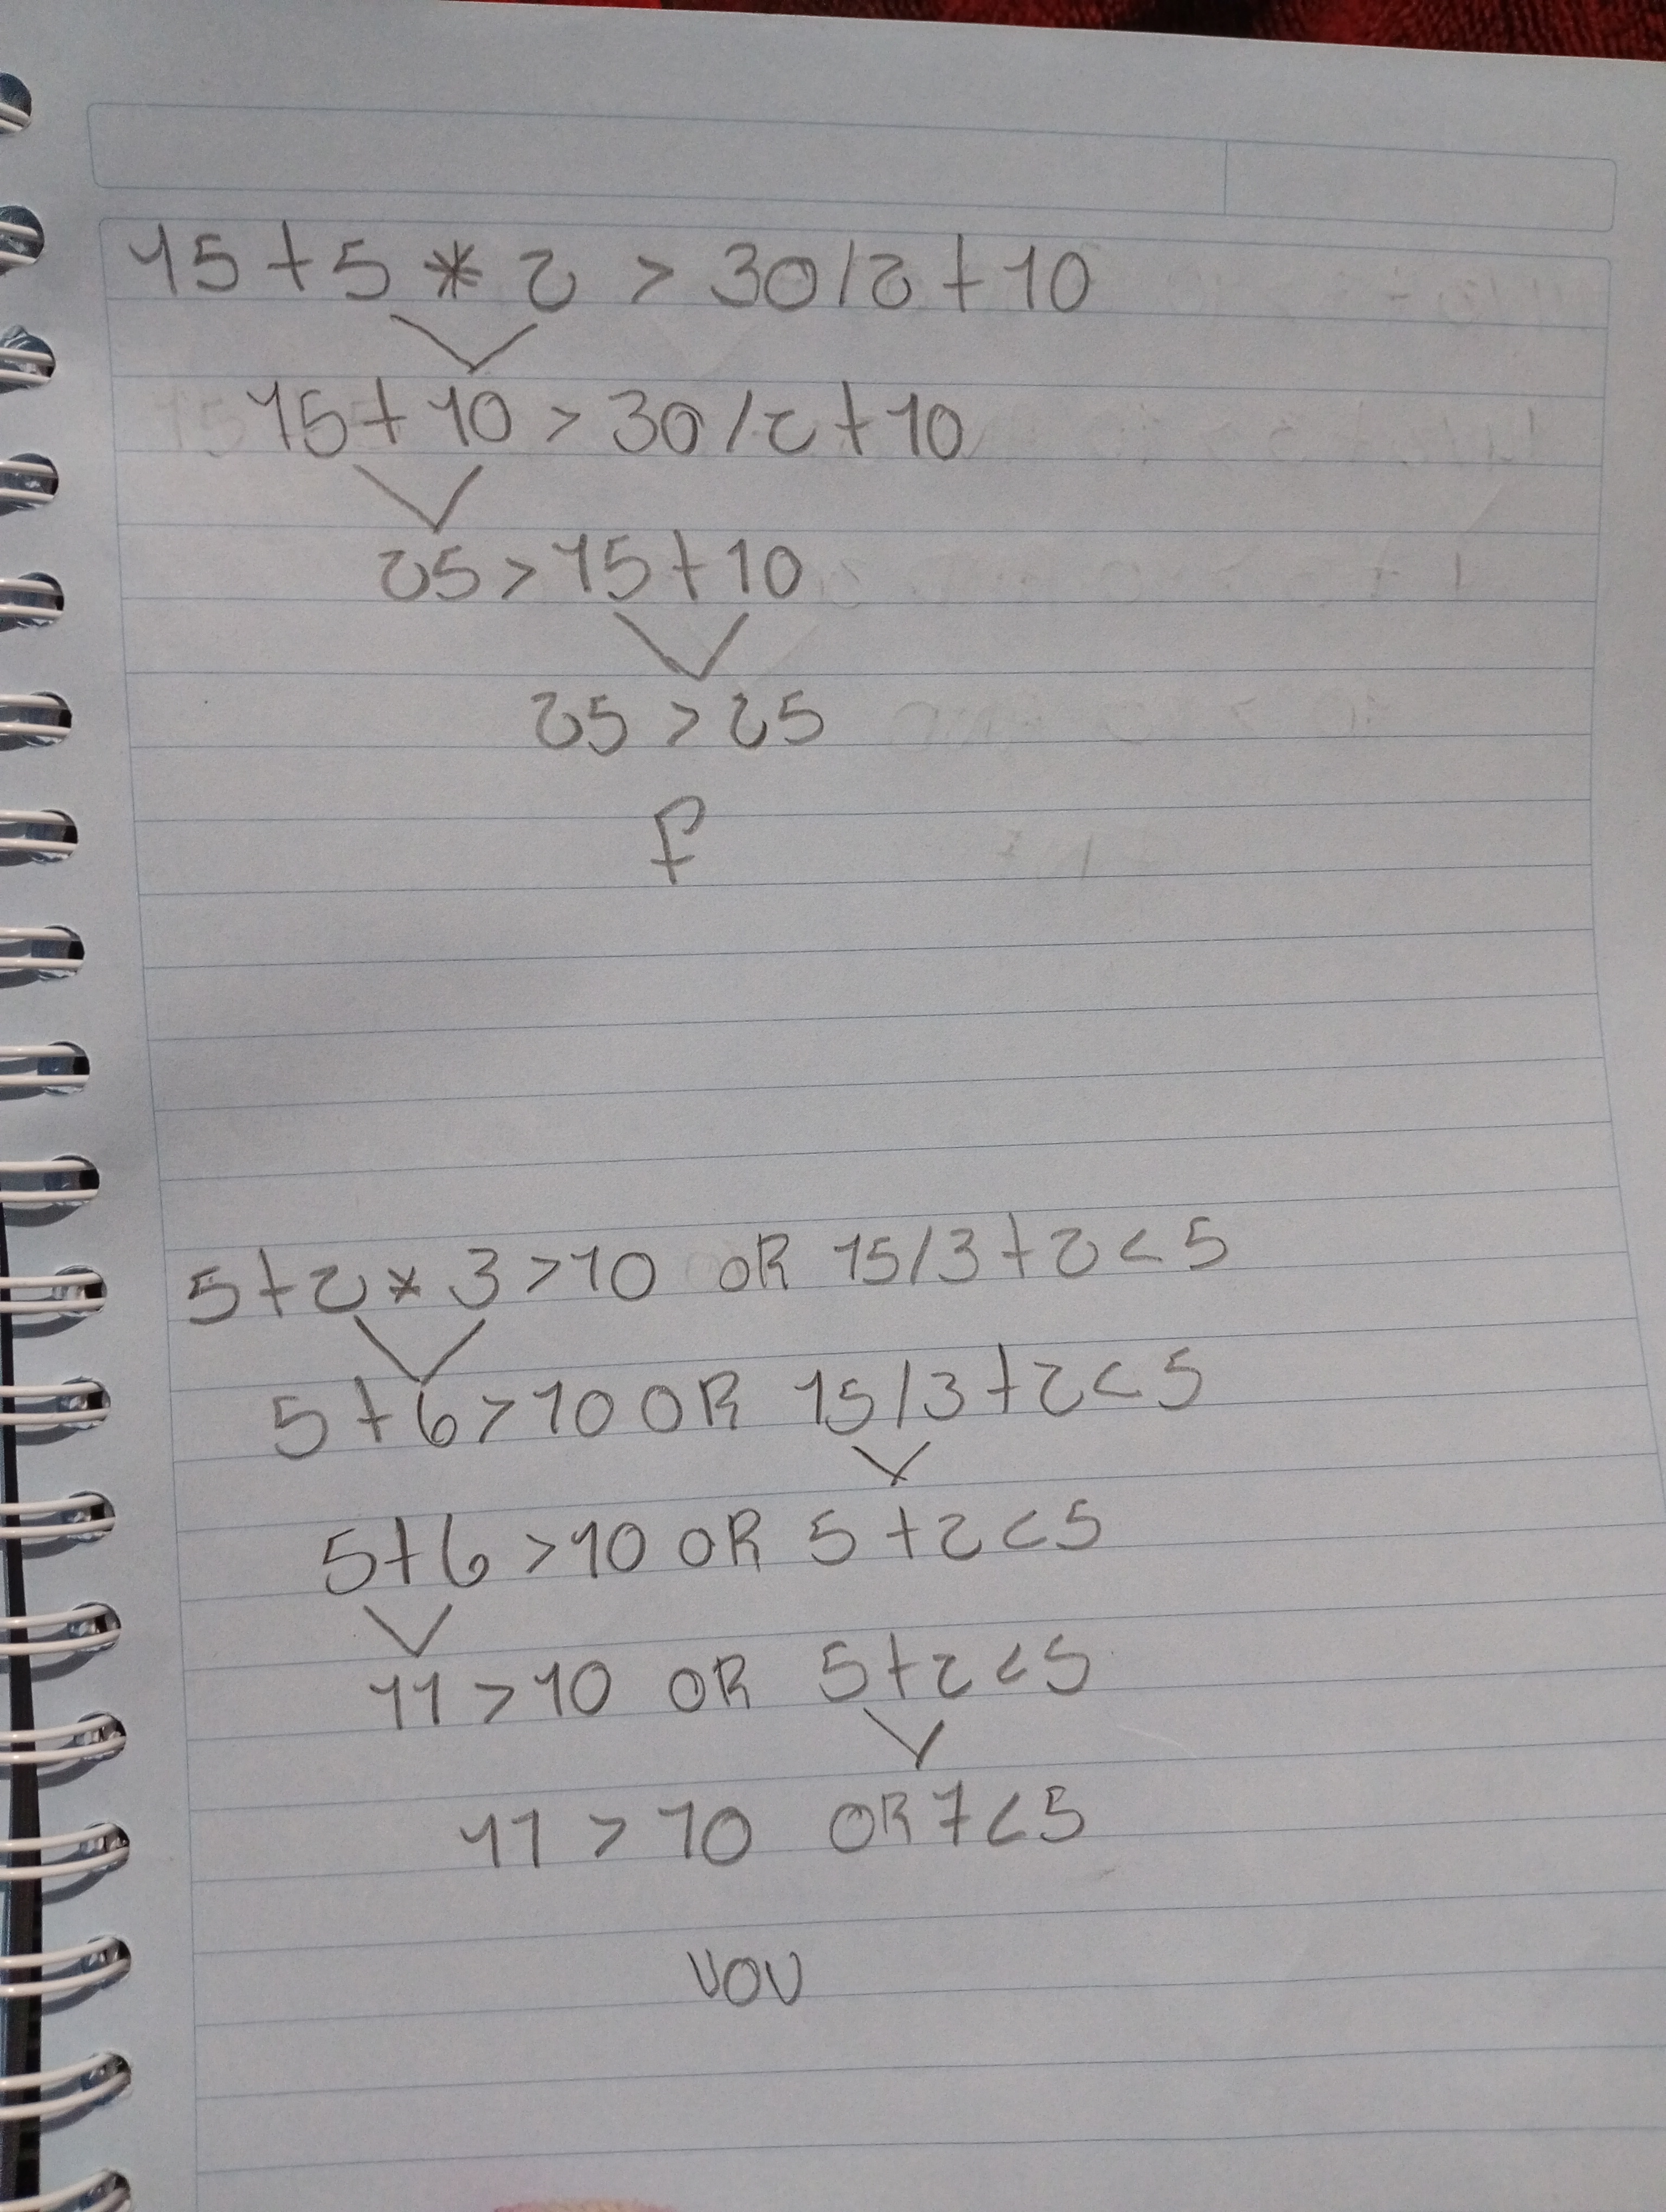 15+5*2 > 30/2+10
15+10 > 30/2+10
25 > 15+10
25 > 25
F
5+2*3>10 OR 15/3+2<5
5+6>10 OR 15/3+2<5
5+6>10 OR 5+2<5
11>10 OR 5+2<5
11 > 10 OR 7<5
VOV